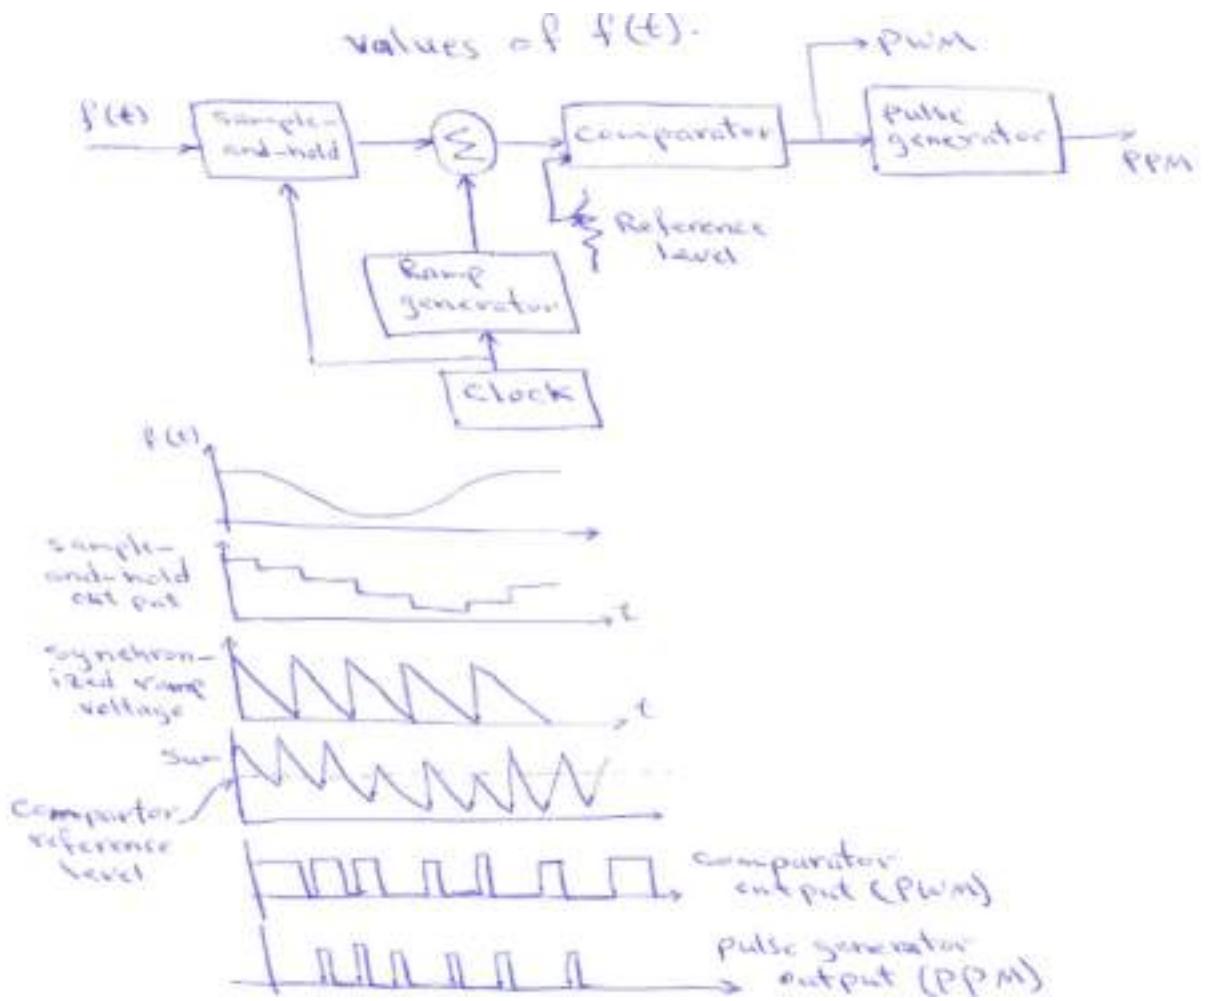 values of f(t).
PWM
f(t)
sample-
and-hold
Σ
comparator
pulse
generator
PPM
Reference
level
Ramp
generator
Clock
f(t)
sample-
and-hold
output
t
synchron-
ized ramp
voltage
t
Sum
Compartor
reference
level
comparator
output (PWM)
pulse generator
output (PPM)